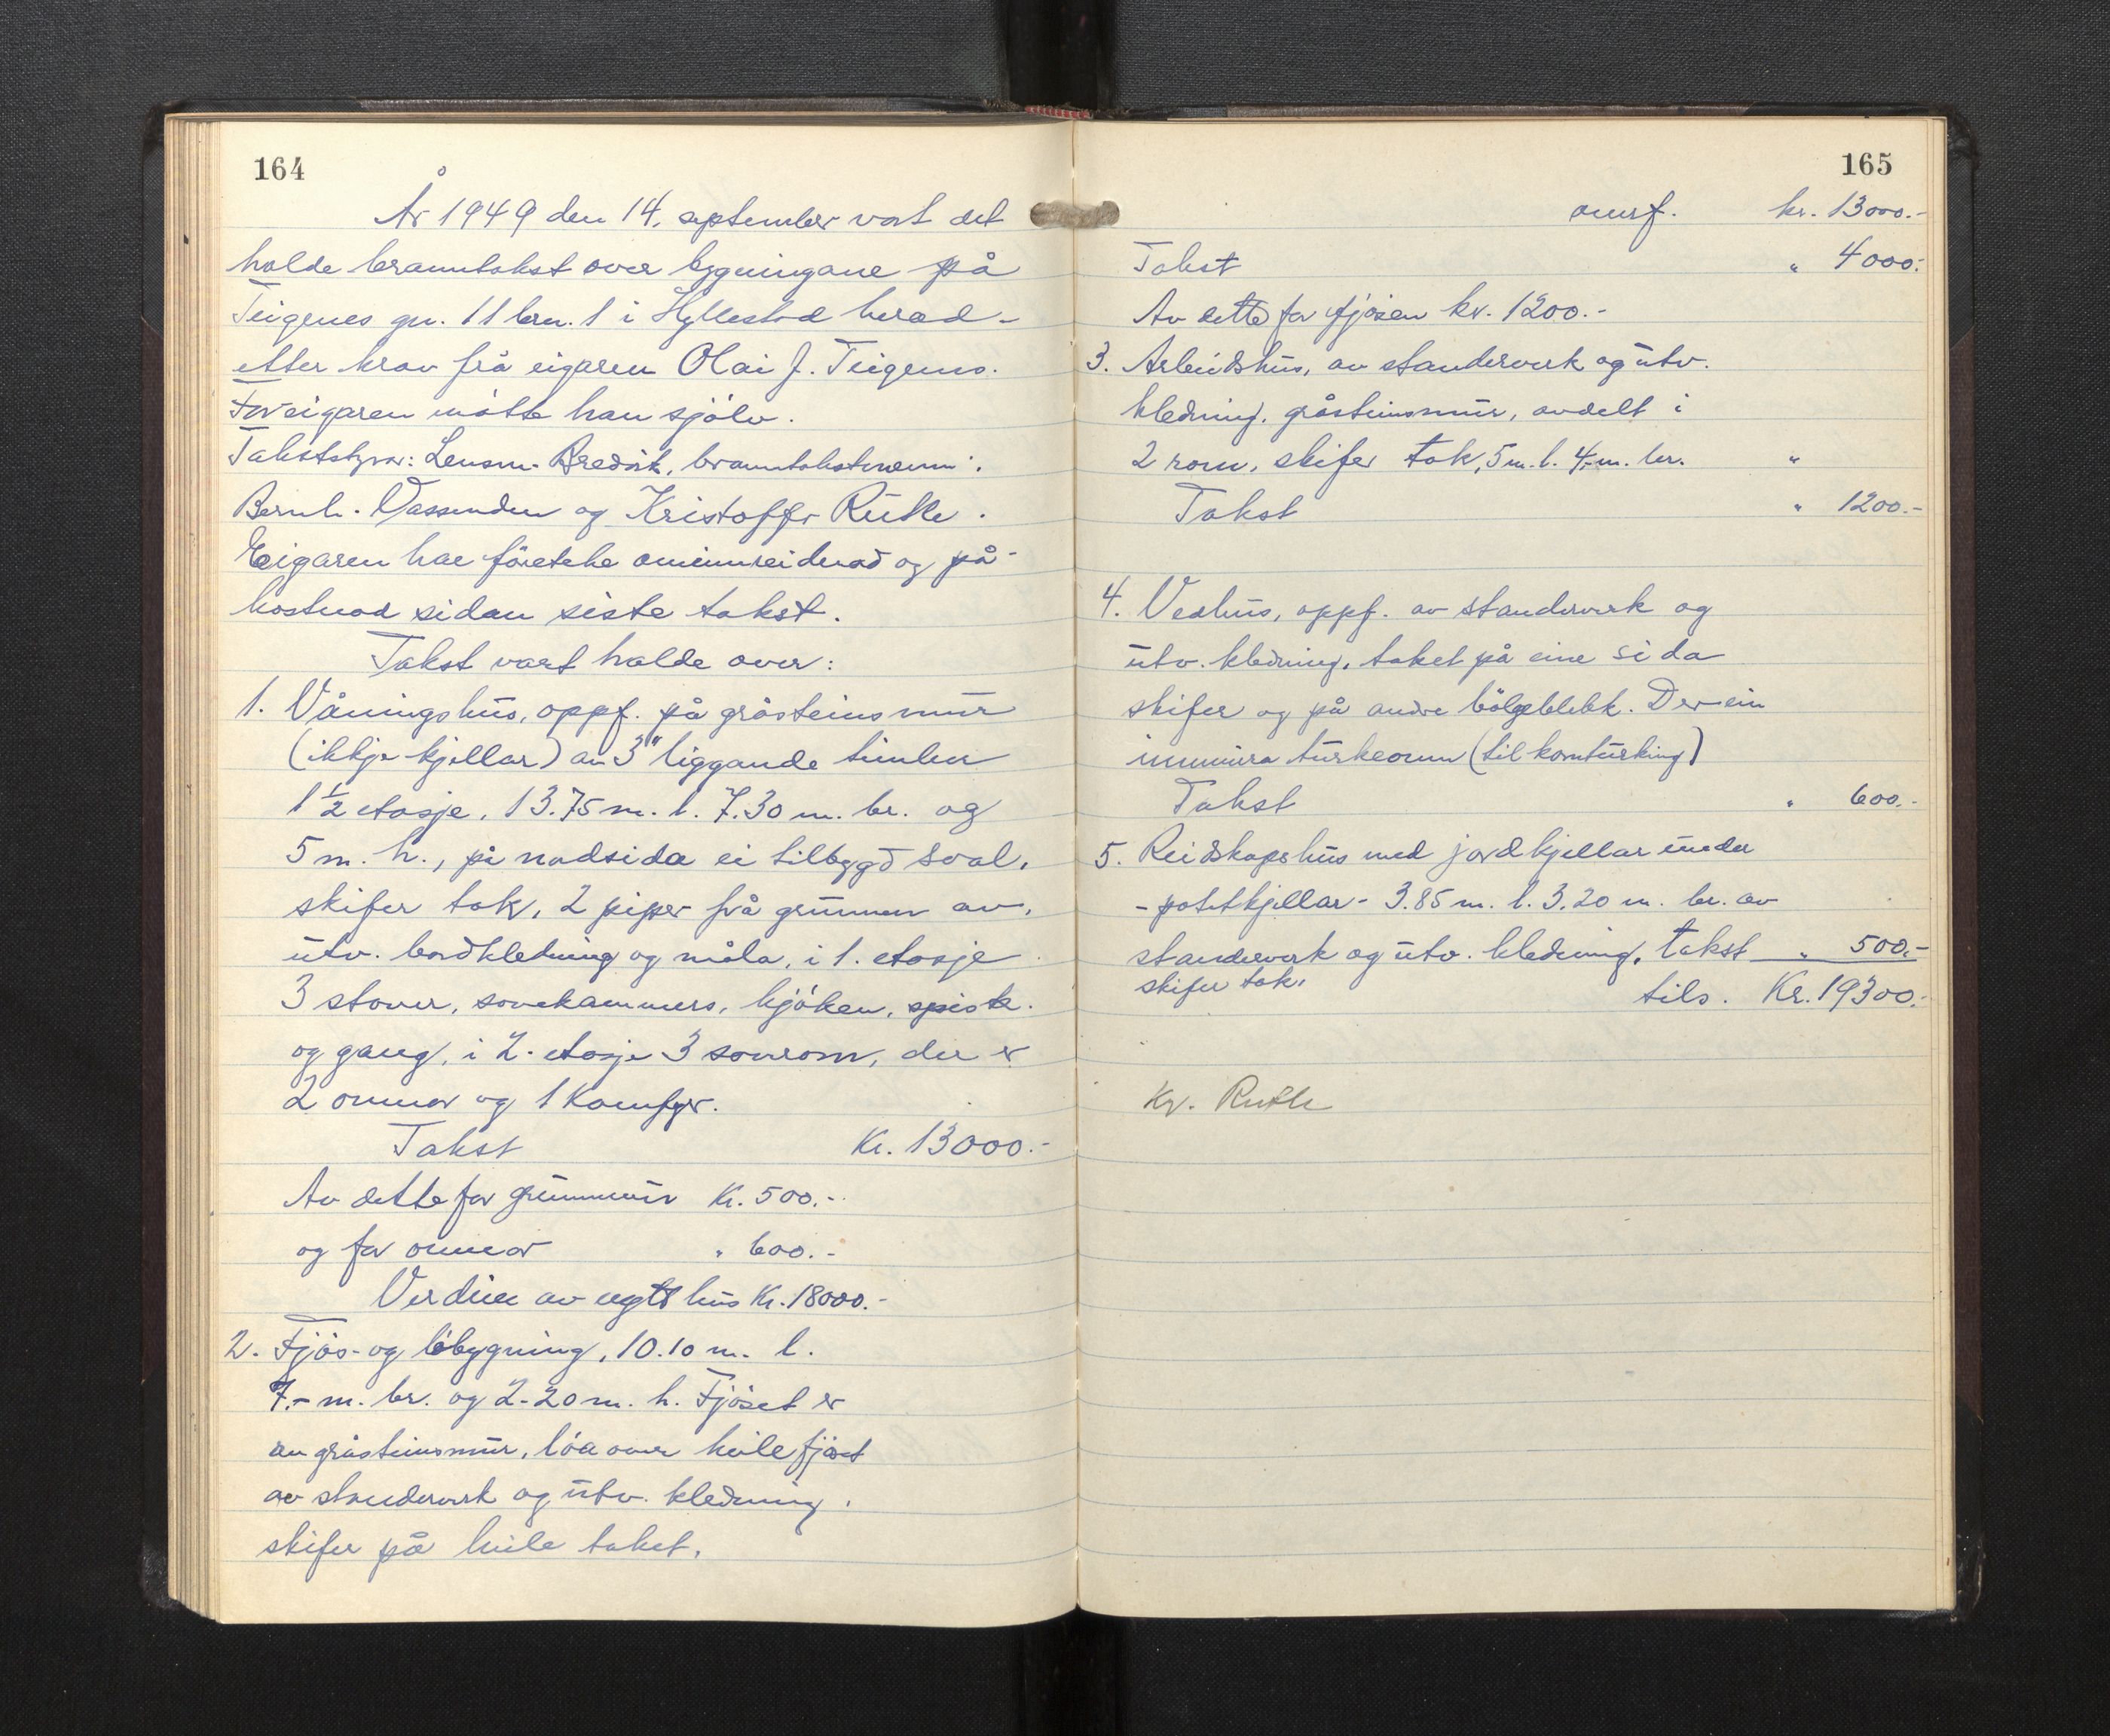 164
År 1949 den 14. september vart det
halde branntakst over bygningane på
Teigenes gn. 11 brn. 1 i Hyllestad herad -
etter krav frå eigaren Olai J. Teigenes.
For eigaren møtte han sjølv.
Takststyrar: Lensm. Bredvik, branntakstmenn:
Bernh. Vassenden og Kristoffer Rutle.
Eigaren har føreteke ominnreidnad og på-
kostnad sidan siste takst.
Takst vart halde over:
1. Våningshus, oppf. på gråsteinsmur
(ikkje kjellar) av 3" liggande timber
1½ etasje, 13.75 m. l. 7.30 m. br. og
5 m. h., på nodsida ei tilbygd sval,
skifer tak, 2 piper frå grunnen av,
utv. bordkledning og måla, i 1. etasje
3 stover, sovekammers, kjøken, spisk.
og gang, i 2. etasje 3 soverom, der er
2 omnar og 1 Komfyr.
Takst Kr. 13000.-
Av dette for grunnmur Kr. 500.-
og for omnar " 600.-
Verdien av nytt hus Kr. 18000.-
2. Fjøs- og løbygning, 10.10 m. l.
7.- m. br. og 2.20 m. h. Fjøset er
av gråsteinsmur, løa over heile fjøset
av standerverk og utv. kledning,
skifer på heile taket.
165
omf. kr. 13000.-
Takst " 4000.-
Av dette for fjøsen kr. 1200.-
3. Arbeidshus, av standerverk og utv.
kledning, gråsteinsmur, avdelt i
2 rom, skifer tak, 5 m. l. 4.- m. br. "
Takst " 1200.-
4. Vedhus, oppf. av standerverk og
utv. kledning, taket på eine sida
skifer og på andre bølgeblekk. Der ein
innmura turkeomn (til kornturking)
Takst " 600.-
5. Reidskapshus med jordkjellar under
- potetkjellar - 3.85 m. l. 3.20 m. br. av
standerverk og utv. kledning, takst " 500.-
skifer tak.
tils. Kr. 19300.-
Kr. Rutle